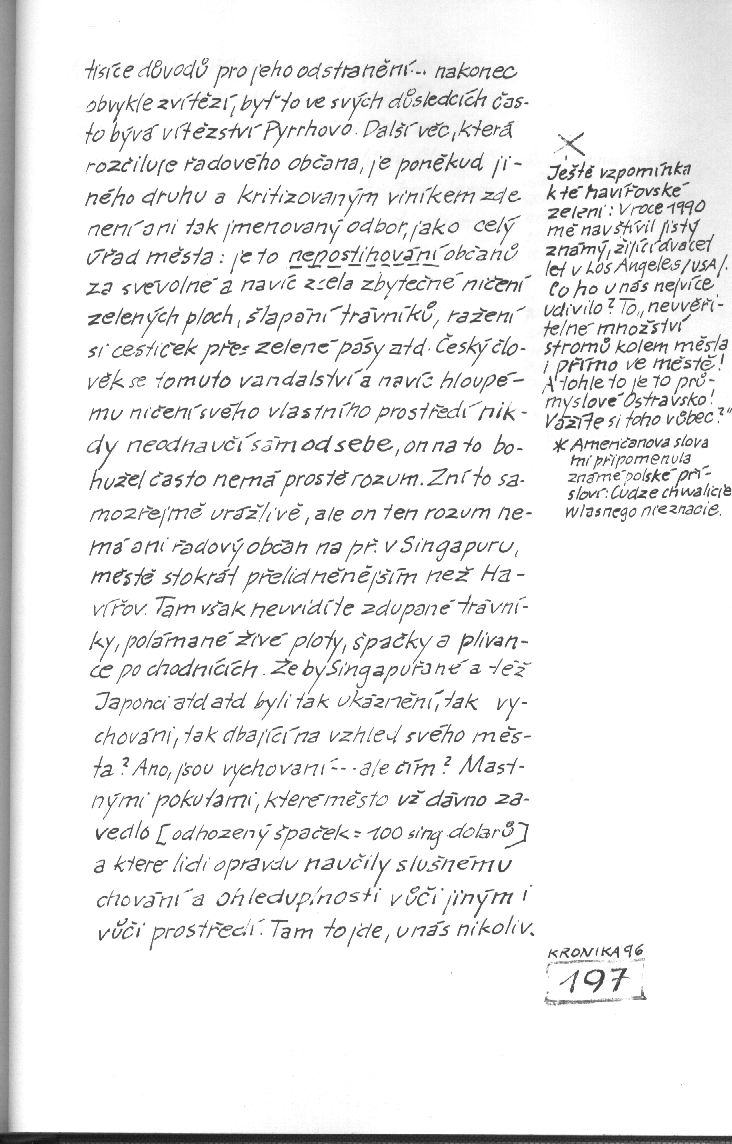 tisíce důvodů pro jeho odstranění... nakonec
obvykle zvítězí, byť to ve svých důsledcích čas-
to bývá vítězství Pyrrhovo. Další věc, která
rozčiluje řadového občana, je poněkud ji-
ného druhu a kritizovaným viníkem zde
není ani tak jmenovaný odbor, jako celý
úřad města: je to nepostihování občanů
za svévolné a navíc zcela zbytečné ničení
zelených ploch, šlapání trávníků, ražení
si cestiček přes zelené pásy atd. Český člo-
věk se tomuto vandalství a navíc hloupé-
mu ničení svého vlastního prostředí nik-
dy neodnaučí sám od sebe, on na to bo-
hužel často nemá prostě rozum. Zní to sa-
mozřejmě urážlivě, ale on ten rozum ne-
má ani řadový občan na př. v Singapuru,
městě stokrát přelidněnějším než Ha-
vířov. Tam však neuvidíte zdupané trávní-
ky, polámané živé ploty, špačky a plivan-
ce po chodnících. Že by Singapuřané a též
Japonci atd atd byli tak ukáznění, tak vy-
chováni, tak dbající na vzhled svého měs-
ta? Ano, jsou vychovaní --- ale čím? Mast-
nými pokutami, které město už dávno za-
vedlo [odhozený špaček = 100 sing dolarů]
a které lidi opravdu naučily slušnému
chování a ohleduplnosti vůči jiným i
vůči prostředí. Tam to jde, u nás nikoliv.
Ještě vzpomínka
k té havířovské
zeleni: V roce 1990
mě navštívil jistý
známý, žijící dvacet
let v Los Angeles/USA/.
Co ho u nás nejvíce
udivilo? To „neuvěři-
telné množství
stromů kolem města
i přímo ve městě!
A tohle to je to prů-
myslové Ostravsko!
Vážíte si toho vůbec?"
* Američanova slova
mi připomenula
známé polské pří-
sloví: Cudze chwalicie
wlasnego nieznacie.
KRONIKA 96
197